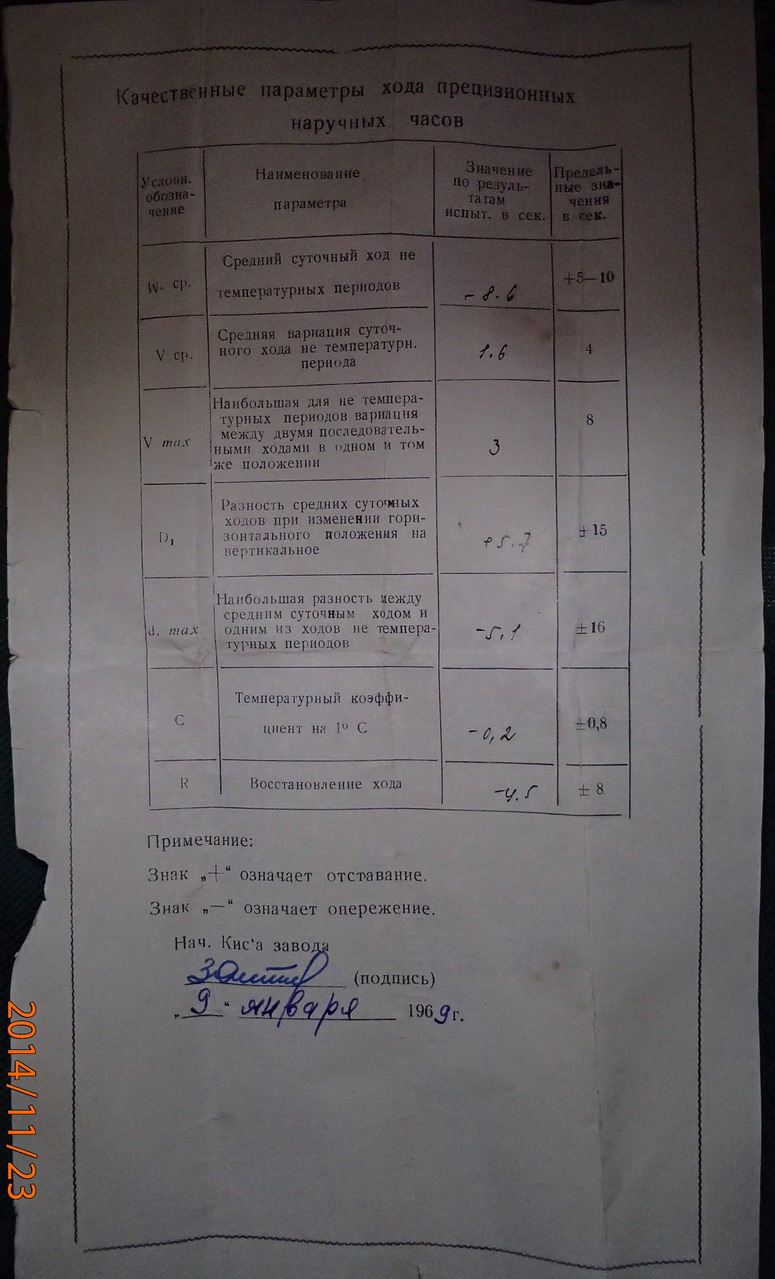 Качественные параметры хода прецизионных
наручных часов
Условн.
обозна-
чение
Наименование
параметра
Значение
по резуль-
татам
испыт. в сек.
Предель-
ные зна-
чения
в сек.
W. ср.
Средний суточный ход не
температурных периодов
-8.6
+5—10
V ср.
Средняя вариация суточ-
ного хода не температурн.
периода
1.6
4
V max
Наибольшая для не темпера-
турных периодов вариация
между двумя последователь-
ными ходами в одном и том
же положении
3
8
D₁
Разность средних суточных
ходов при изменении гори-
зонтального положения на
вертикальное
+5.7
±15
d. max
Наибольшая разность между
средним суточным ходом и
одним из ходов не темпера-
турных периодов
-5,1
±16
C
Температурный коэффи-
циент на 1° С
-0,2
±0,8
R
Восстановление хода
-4.5
± 8
Примечание:
Знак „+“ означает отставание.
Знак „—“ означает опережение.
Нач. Кис‘а завода
(подпись)
„9“ января 1969г.
2014/11/23